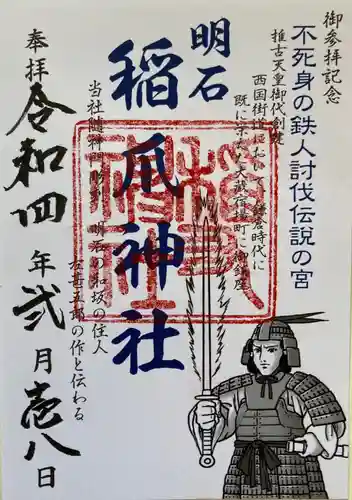 御参拝記念
不死身の鉄人討伐伝説の宮
推古天皇御代創建
西国街道において、鎌倉時代に
既に栄えた大蔵宿場町に御鎮座
明石
稲爪神社
当社随神門
明石の和坂の住人
左甚五郎の作と伝わる
奉拝
令和四年弐月壱八日